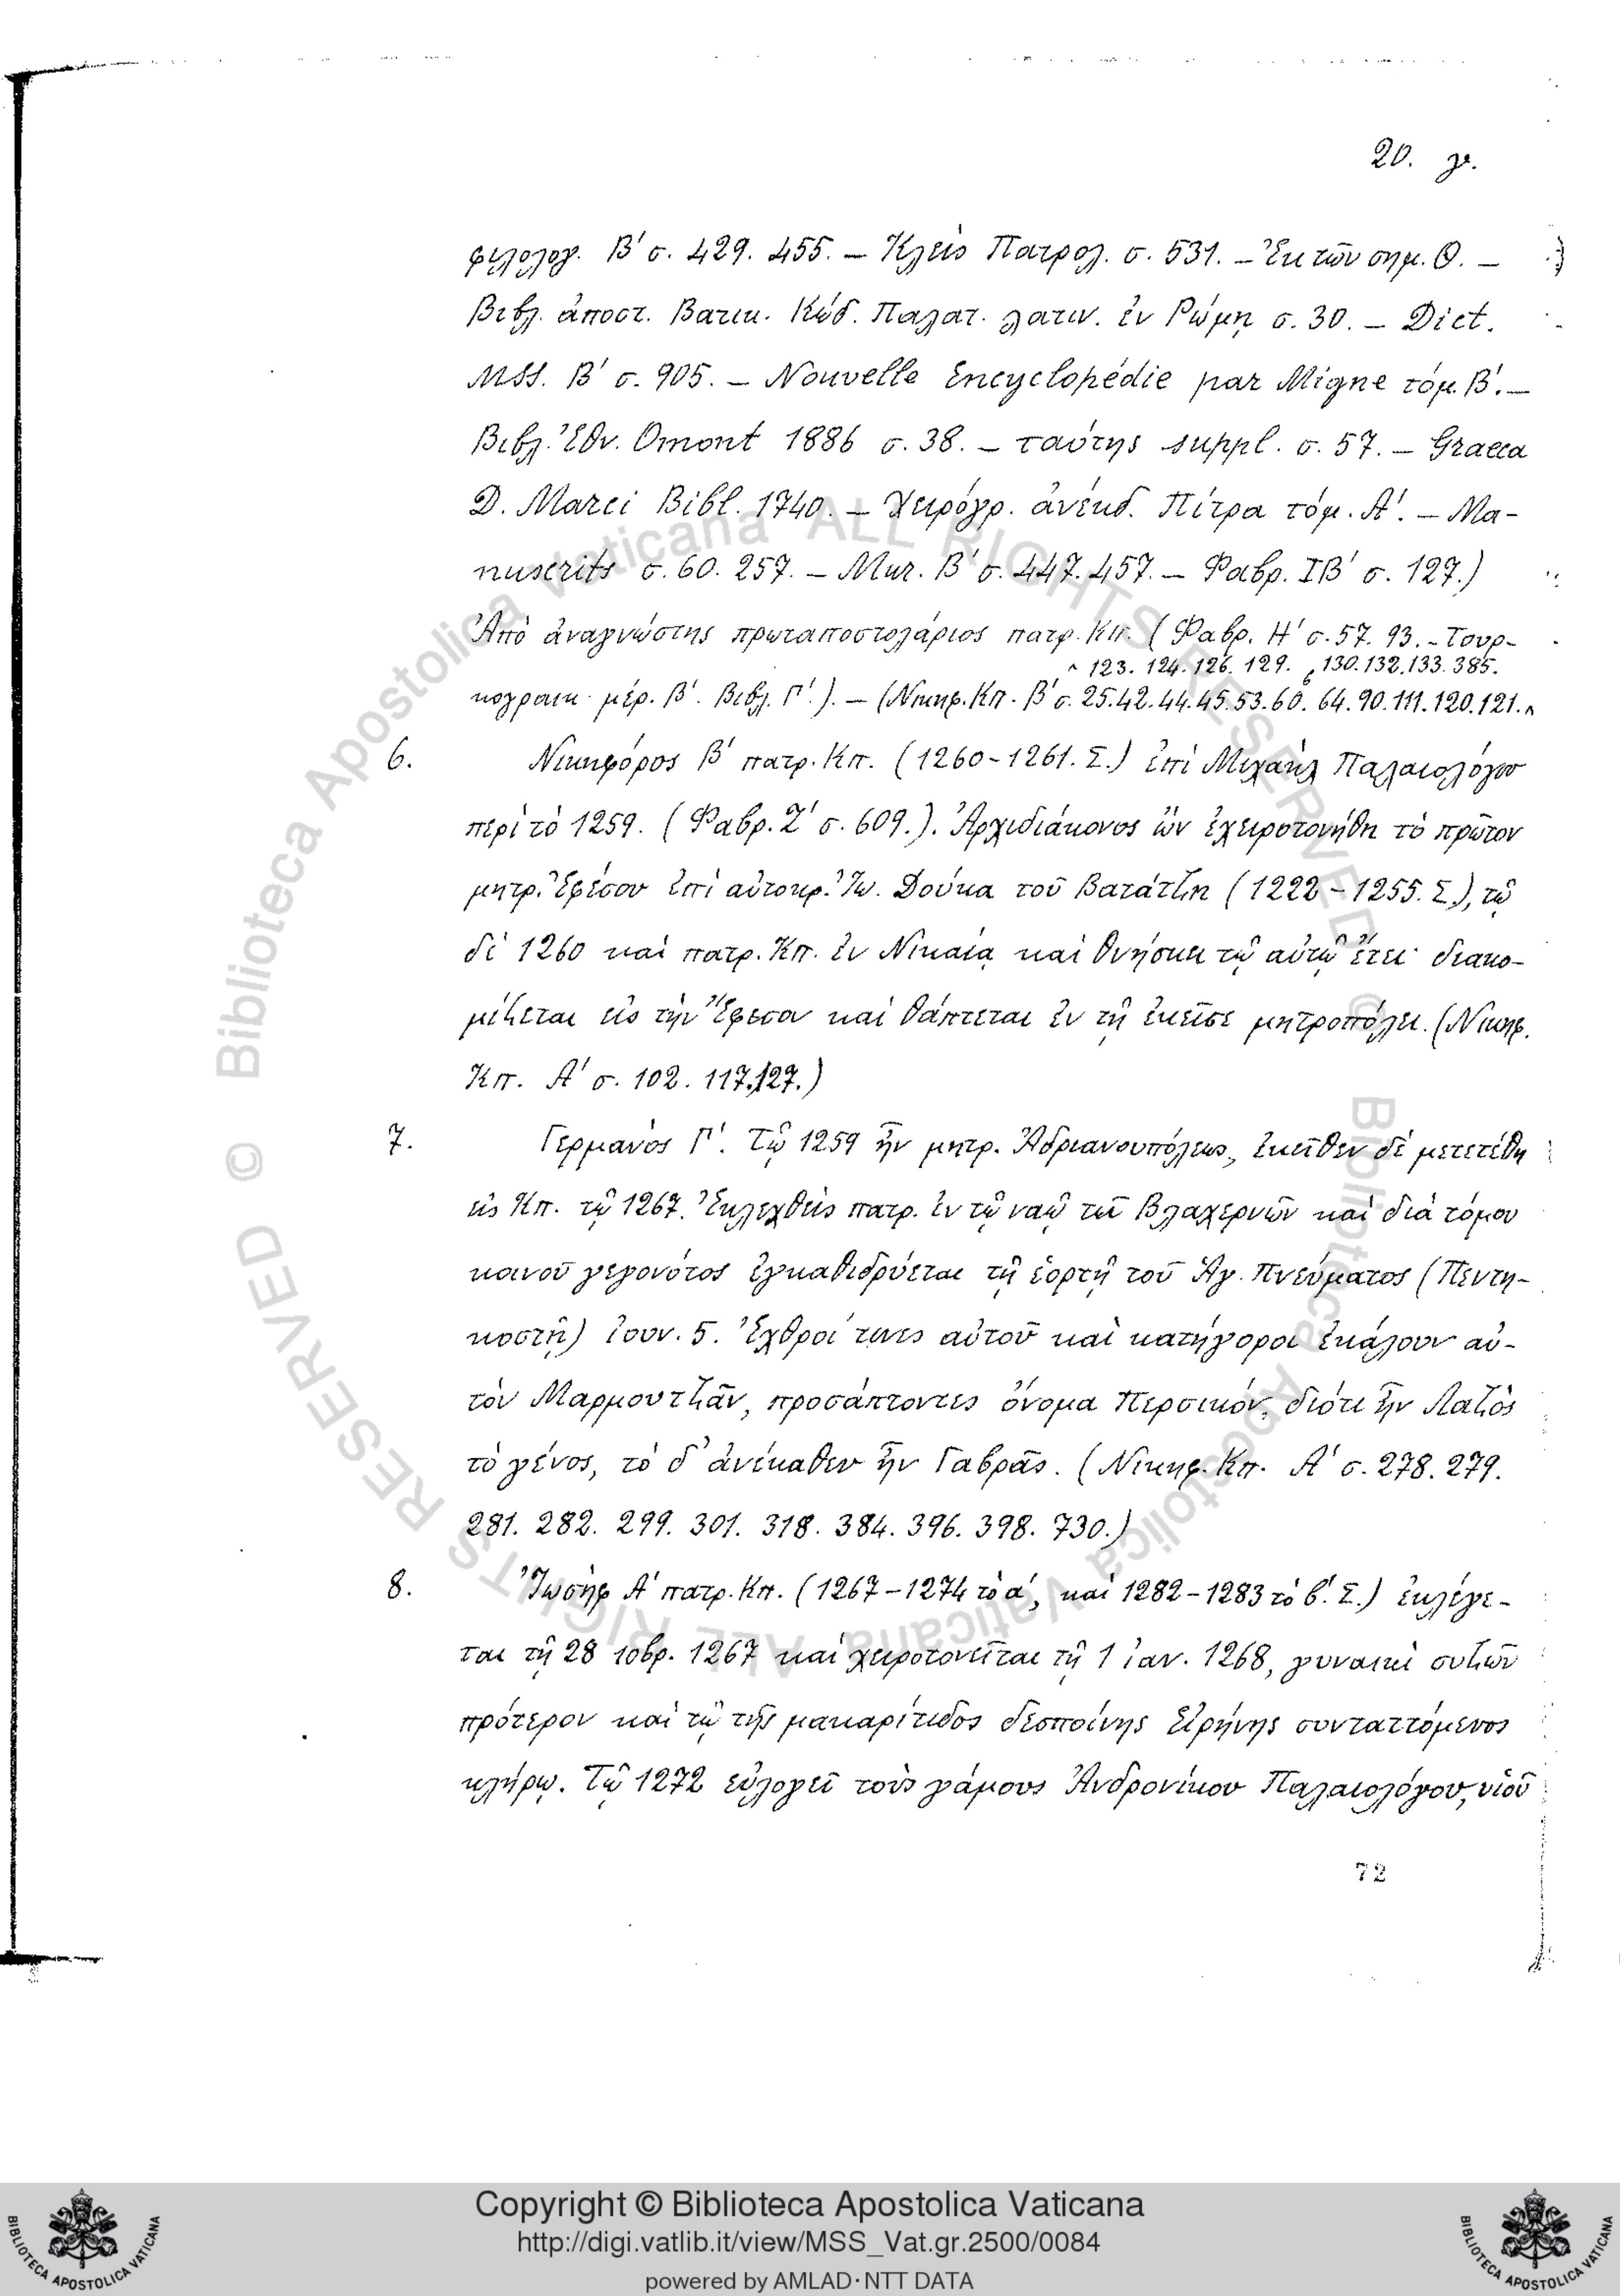 20. γ.
φιλολογ. Β' σ. 429. 455. – Κλεὶς Πατρολ. σ. 531. – Ἐκ τῶν σημ. Θ. –
Βιβλ. ἀποστ. Βατικ. Κώδ. Παλατ. λατιν. ἐν Ρώμῃ σ. 30. – Dict.
MSS. Β' σ. 905. – Nouvelle Encyclopédie par Migne τόμ. Β'. –
Βιβλ. Ἐθν. Omont 1886 σ. 38. – ταύτης suppl. σ. 57. – Graeca
D. Marci Bibl. 1740. – Χειρόγρ. ἀνέκδ. Πίτρα τόμ. Α'. – Ma-
nuscrits σ. 60. 257. – Mur. Β' σ. 447. 457. – Φαβρ. ΙΒ' σ. 127.)
Ἀπὸ ἀναγνώστης πρωταποστολάριος πατρ. Κπ. (Φαβρ. Η' σ. 57. 93. – Τουρ-
123. 124. 126. 129. 130. 132. 133. 385.
κογραικ. μέρ. Β'. Βιβλ. Γ'.). – (Νικηφ. Κπ. Β' σ. 25. 42. 44. 45. 53. 60. 64. 90. 111. 120. 121.
6. Νικηφόρος Β' πατρ. Κπ. (1260 – 1261. Σ.) ἐπὶ Μιχαὴλ Παλαιολόγου
περὶ τὸ 1259. (Φαβρ. Ζ' σ. 609.). Ἀρχιδιάκονος ὢν ἐχειροτονήθη τὸ πρῶτον
μητρ. Ἐφέσου ἐπὶ αὐτοκρ. Ἰω. Δούκα τοῦ Βατάτζη (1222 – 1255. Σ.), τῷ
δὲ 1260 καὶ πατρ. Κπ. ἐν Νικαίᾳ καὶ θνήσκει τῷ αὐτῷ ἔτει· διακο-
μίζεται εἰς τὴν Ἔφεσον καὶ θάπτεται ἐν τῇ ἐκεῖσε μητροπόλει. (Νικηφ.
Κπ. Α' σ. 102. 117. 127.)
7. Γερμανὸς Γ'. Τῷ 1259 ἦν μητρ. Ἀδριανουπόλεως, ἐκεῖθεν δὲ μετετέθη
εἰς Κπ. τῷ 1267. Ἐκλεχθεὶς πατρ. ἐν τῷ ναῷ τῶν Βλαχερνῶν καὶ διὰ τόμου
κοινοῦ γεγονότος ἐγκαθιδρύεται τῇ ἑορτῇ τοῦ Ἁγ. Πνεύματος (Πεντη-
κοστῇ) ἰουν. 5. Ἐχθροί τινες αὐτοῦ καὶ κατήγοροι ἐκάλουν αὐ-
τὸν Μαρμουτζᾶν, προσάπτοντες ὄνομα Περσικόν, διότι ἦν Λαζὸς
τὸ γένος, τὸ δ' ἀνέκαθεν ἦν Γαβρᾶς. (Νικηφ. Κπ. Α' σ. 278. 279.
281. 282. 299. 301. 318. 384. 396. 398. 730.)
8. Ἰωσὴφ Α' πατρ. Κπ. (1267 – 1274 τὸ α', καὶ 1282 – 1283 τὸ β'. Σ.) ἐκλέγε-
ται τῇ 28 10βρ. 1267 καὶ χειροτονεῖται τῇ 1 ἰαν. 1268, γυναικὶ συζῶν
πρότερον καὶ τῷ τῆς μακαρίτιδος δεσποίνης Εἰρήνης συνταττόμενος
κλήρῳ. Τῷ 1272 εὐλογεῖ τοὺς γάμους Ἀνδρονίκου Παλαιολόγου, υἱοῦ
72
© Biblioteca Apostolica Vaticana ALL RIGHTS RESERVED
© Biblioteca Apostolica Vaticana ALL RIGHTS RESERVED
Copyright © Biblioteca Apostolica Vaticana
http://digi.vatlib.it/view/MSS_Vat.gr.2500/0084
powered by AMLAD·NTT DATA
BIBLIOTECA APOSTOLICA VATICANA
BIBLIOTECA APOSTOLICA VATICANA